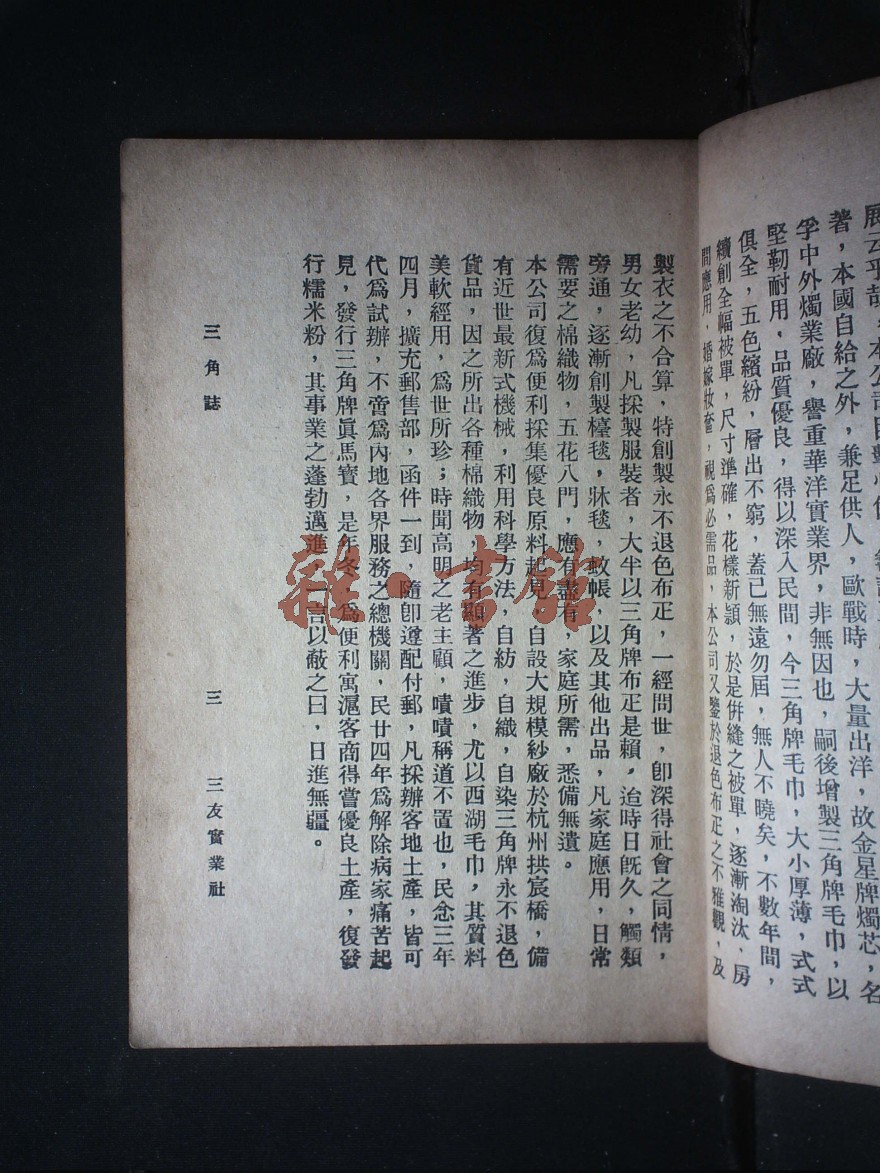 著，本國自給之外，兼足供人，歐戰時，大量出洋，故金星牌燭芯，名
孚中外燭業廠，譽重華洋實業界，非無因也，嗣後增製三角牌毛巾，以
堅韌耐用，品質優良，得以深入民間，今三角牌毛巾，大小厚薄，式式
俱全，五色繽紛，層出不窮，蓋已無遠勿屆，無人不曉矣，不數年間，
續創全幅被單，尺寸準確，花樣新頴，於是倂縫之被單，逐漸淘汰，房
間應用，婚嫁妝奩，視爲必需品，本公司又鑒於退色布疋之不雅觀，及
製衣之不合算，特創製永不退色布疋，一經問世，卽深得社會之同情，
男女老幼，凡採製服裝者，大半以三角牌布疋是賴，迨時日旣久，觸類
旁通，逐漸創製檯毯，牀毯，蚊帳，以及其他出品，凡家庭應用，日常
需要之棉織物，五花八門，應有盡有，家庭所需，悉備無遺。
本公司復爲便利採集優良原料起見，自設大規模紗廠於杭州拱宸橋，備
有近世最新式機械，利用科學方法，自紡，自織，自染三角牌永不退色
貨品，因之所出各種棉織物，均有顯著之進步，尤以西湖毛巾，其質料
美軟經用，爲世所珍；時聞高明之老主顧，嘖嘖稱道不置也，民念三年
四月，擴充郵售部，函件一到，隨卽遵配付郵，凡採辦客地土產，皆可
代爲試辦，不啻爲內地各界服務之總機關，民廿四年爲解除病家痛苦起
見，發行三角牌眞馬寶，是年冬，爲便利寓滬客商得嘗優良土產，復發
行糯米粉，其事業之蓬勃邁進，一言以蔽之曰，日進無疆。
三角誌
三
三友實業社
雜·書館